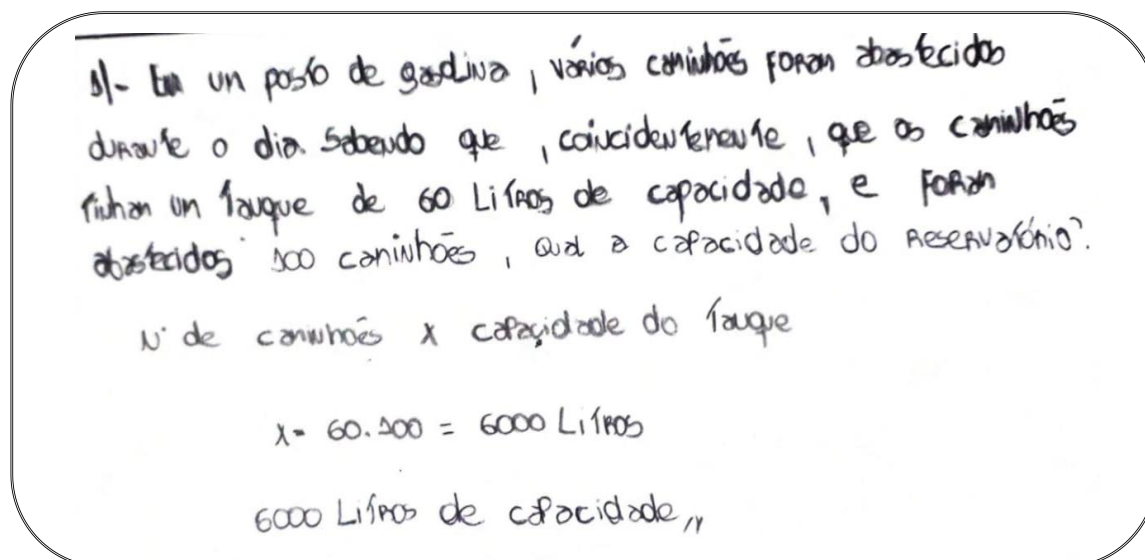 1)- Em un posto de gasolina, vários caminhões foran abastecidos
durante o dia. Sabendo que, coincidentemente, que os caminhões
tinhan un tanque de 60 Litros de capacidade, e foran
abastecidos 100 caminhões, qual a capacidade do reservatório?
N° de caminhões x capacidade do tanque
x = 60.100 = 6000 Litros
6000 Litros de capacidade,,